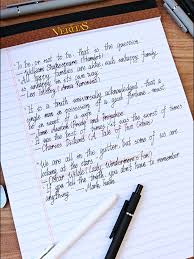 VERITAS
"To be, or not to be, that is the question.
William Shakespeare (Hamlet)
"All happy families are alike; each unhappy family
is unhappy in its own way."
Leo Tolstoy (Anna Karenina)
"It is a truth universally acknowledged, that a
single man in possession of a good fortune must
be in want of a wife."
Jane Austen (Pride and Prejudice)
"It was the best of times, it was the worst of times
Charles Dickens (A Tale of Two Cities)
"We are all in the gutter, but some of us are
looking at the stars."
Oscar Wilde (Lady Windermere's Fan)
"If you tell the truth, you don't have to remember
anything." - Mark Twain